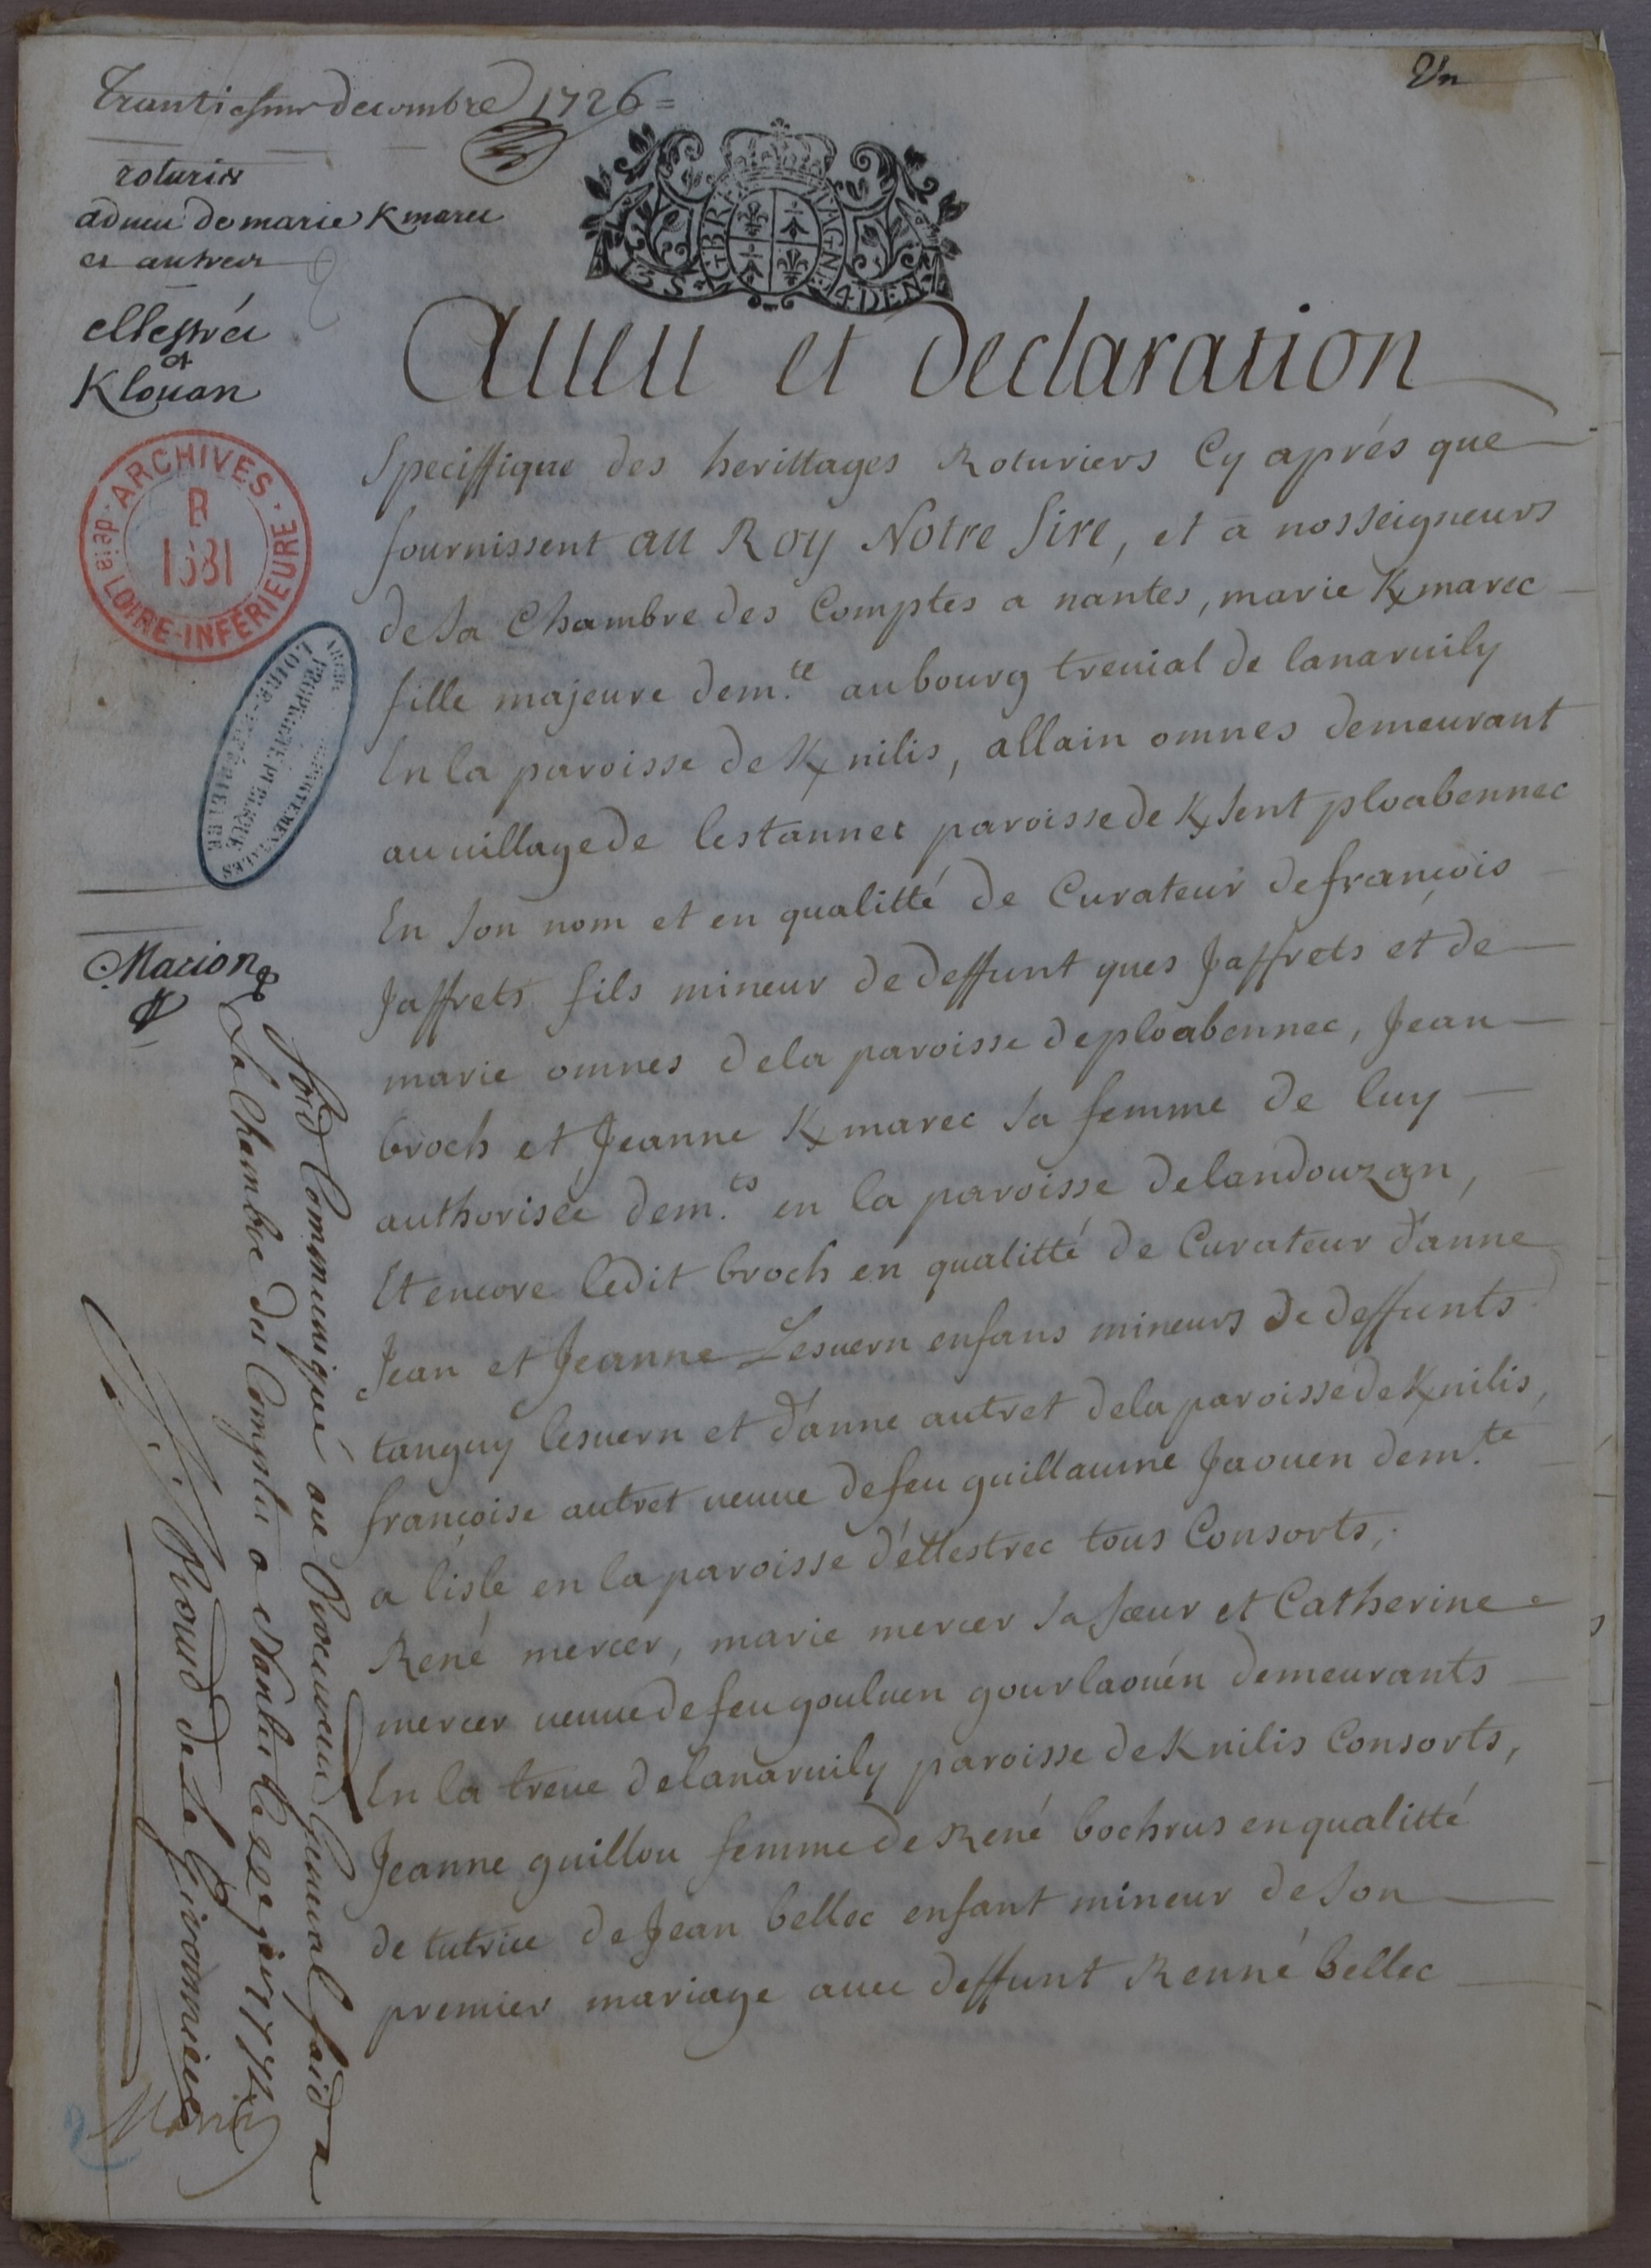 Trantiesme decembre 1726 =
Un
roturier
adueu de marie Kmarec
et autres
ellestrec
et
Klouan
BRETAGNE
3 S 4 DEN
Aueu et Declaration
Speciffique des herittages Roturiers Cy aprés que
fournissent au Roy Notre Sire, et a nosseigneurs
de Sa Chambre des Comptes a nantes, marie K/marec
fille majeure dem.te au bourg treuial de lanaruily
En la paroisse de K/nilis, allain omnes demeurant
au uillage de lestannet paroisse de K/sent ploabennec
En Son nom et en qualitté de Curateur de françois
Jaffrets fils mineur de deffunt yues Jaffrets et de
marie omnes de la paroisse de ploabennec, Jean
broch et Jeanne K/marec Sa femme de luy
authorisée dem.ts en la paroisse de landouzan,
Et encore ledit broch en qualitté de Curateur d'anne
Jean et Jeanne Lesuern enfans mineurs de deffunts
tanguy lesuern et d'anne autret de la paroisse de K/nilis,
françoise autret ueuue de feu guillaume Jaouen dem.te
a l'isle en la paroisse d'éllestrec tous Consorts,
René mercer, marie mercer Sa Sœur et Catherine
mercer ueuue de feu gouluen gourlaouén demeurants
En la treue de lanaruily paroisse de Knilis Consorts,
Jeanne guillou femme de René bochrus en qualitté
de tutrice de Jean bellec enfant mineur de Son
premier mariage auec deffunt Renné bellec
ARCHIVES
B
1681
LOIRE-INFÉRIEURE
PROPRIÉTÉ PUBLIQUE
Marion
Soid Communiqué au Procureur General faid a
La Chambre des Comptes a Nantes le
de la